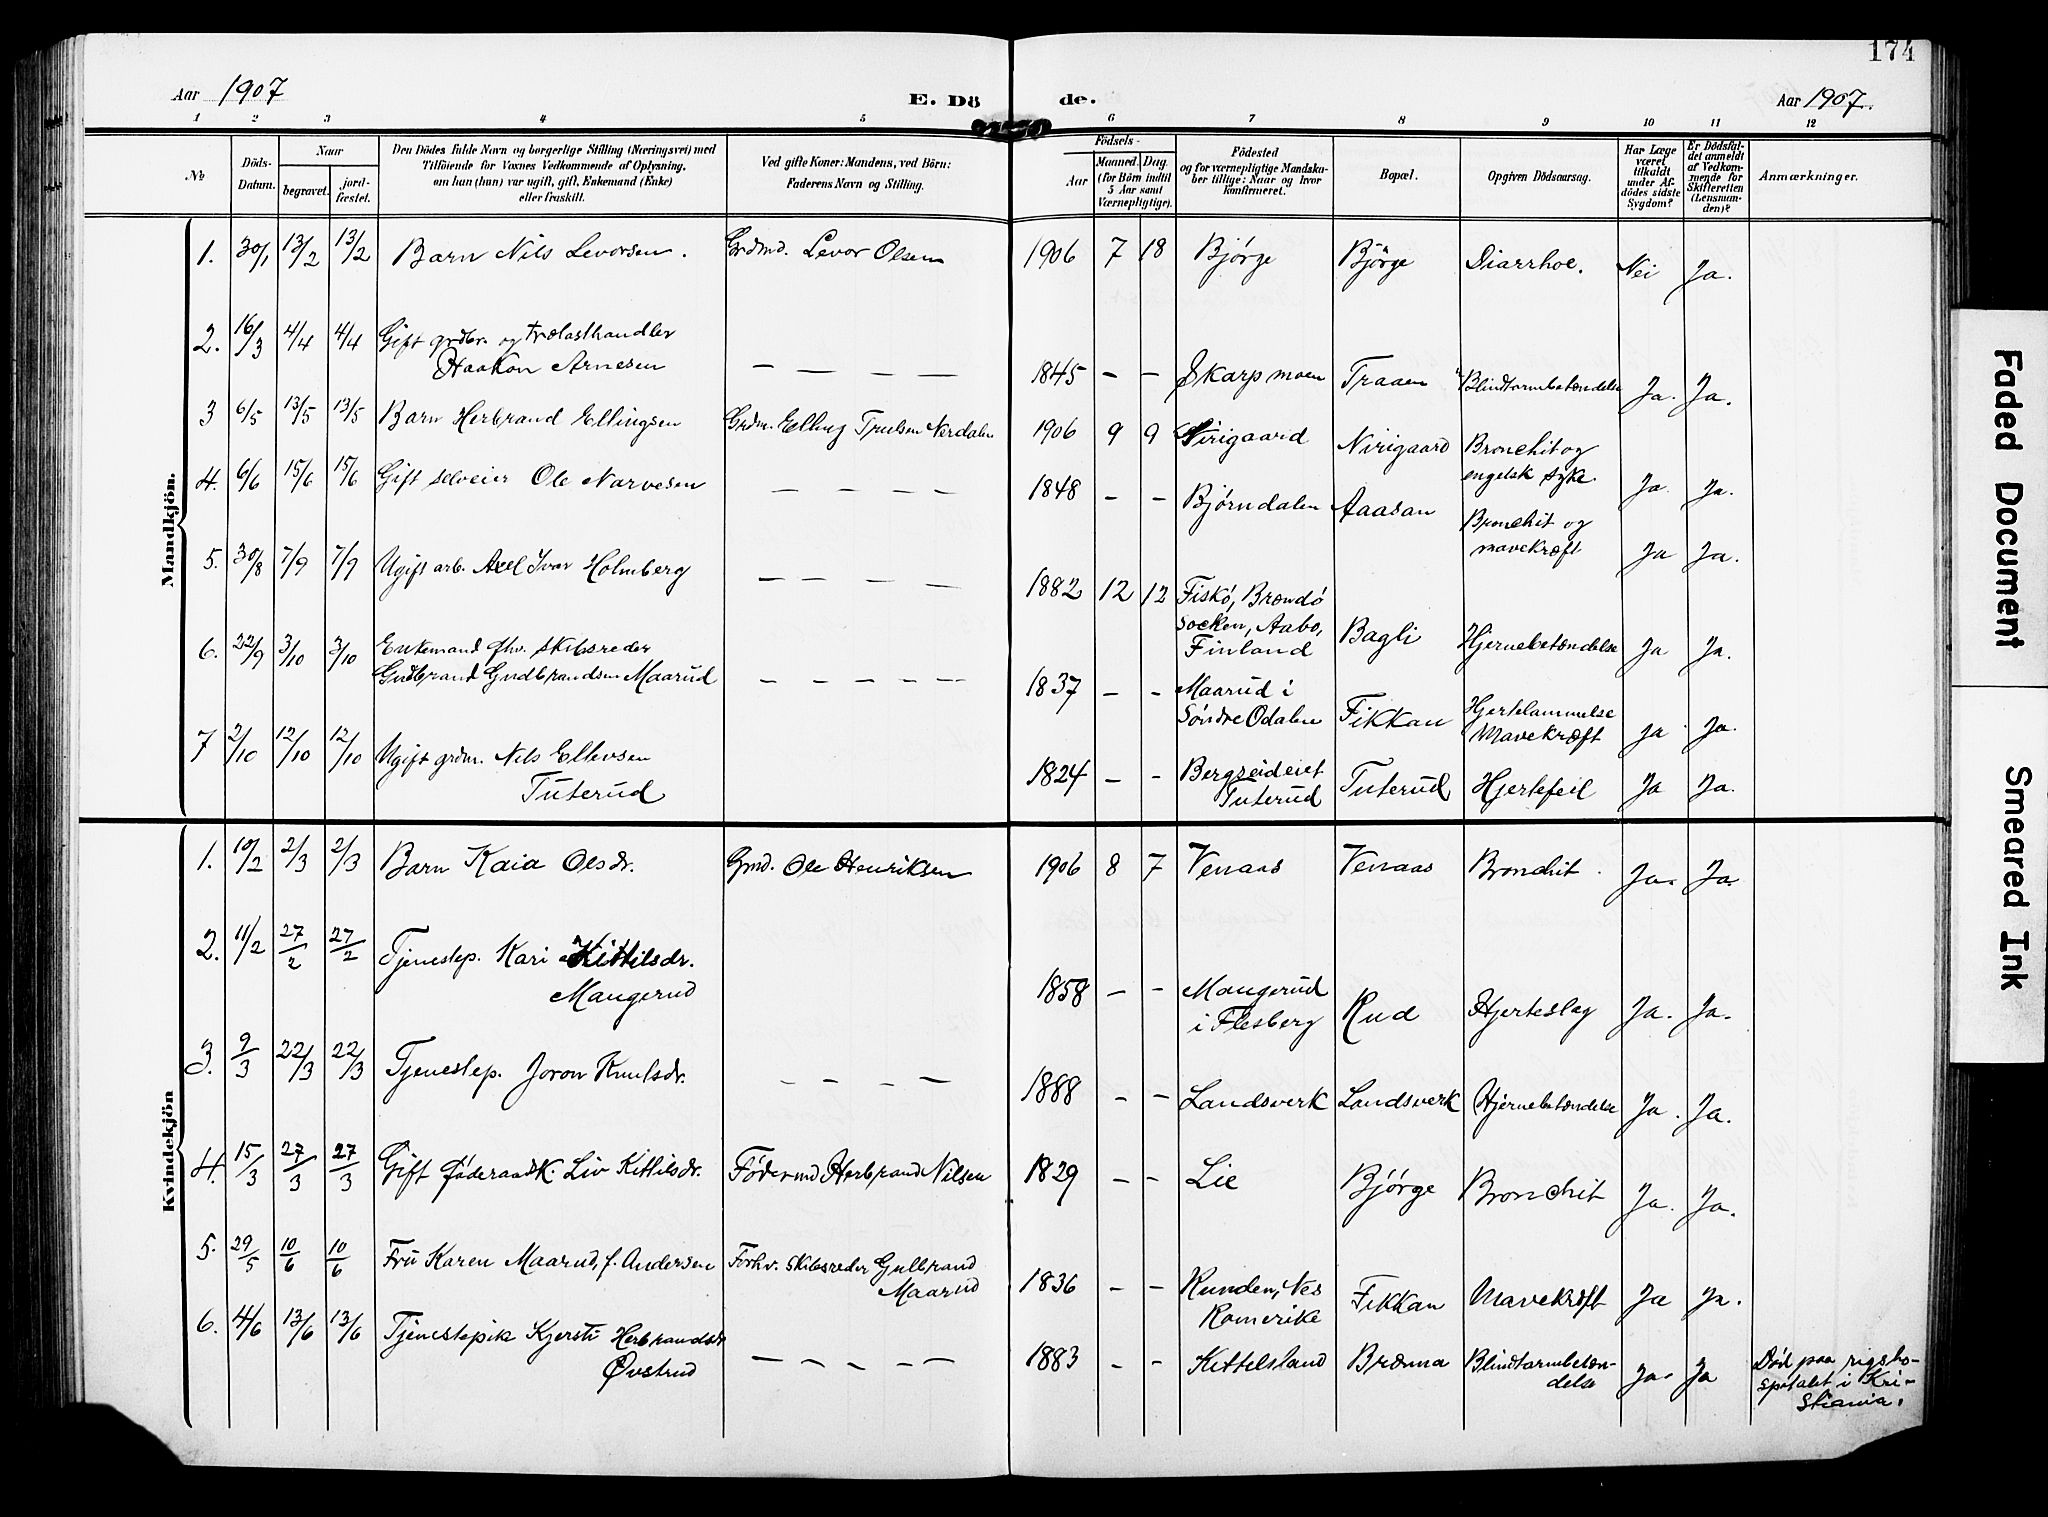 174
Aar 1907
E. Dö
de.
Aar 1907.
1 2 3 4 5 6 7 8 9 10 11 12
No
Döds-Datum.
Naar
begravet.
jord-fæstet.
Den Dödes fulde Navn og borgerlige Stilling (Næringsvei) med
Tilföiende for Voxnes Vedkommende af Oplysning,
om han (hun) var ugift, gift, Enkemand (Enke)
eller fraskilt.
Ved gifte Koner: Mandens, ved Börn:
Faderens Navn og Stilling.
Födsels-
Aar
Maaned. Dag
(for Börn indtil
5 Aar samt
Værnepligtige).
Födested
og for værnepligtige Mandska-
ber tillige: Naar og hvor
konfirmeret.
Bopæl.
Opgiven Dödsaarsag.
Har Læge
været
tilkaldt
under Af-
dödes sidste
Sygdom?
Er Dödsfal-
det anmeldt
af Vedkom-
mende for
Skifteretten
(Lensman-
den)?
Anmærkninger.
Mandkjön.
1. 30/1 13/2 13/2 Barn Nils Levorsen. Grdmd. Levor Olsen 1906 7 18 Bjørge Bjørge Diarrhoe. Nei Ja.
2. 16/3 4/4 4/4 Gift grdbr. og trælasthandler
Haakon Arnesen — — — — 1845 — — Skarpmoen Traaen Blindtarmbetændelse Ja. Ja.
3 6/5 13/5 13/5 Barn Herbrand Ellingsen Grdm. Elling Trulsen Nerdalen 1906 9 9 Nirigaard Nirigaard Bronchit og
engelsk syke. Ja. Ja.
4. 6/6 15/6 15/6 Gift selveier Ole Narvesen — — — — 1848 — — Bjørndalen Aaasan Bronchit og
mavekræft Ja Ja.
5. 30/8 7/9 7/9 Ugift arb. Axel Ivar Holmberg — — — — 1882 12 12 Fiskö, Brændö
socken, Aabo,
Finland Bagli Hjernebetændelse Ja Ja.
6. 22/9 3/10 3/10 Enkemand fhv. skibsreder
Gudbrand Gudbrandsen Maarud — — — — — 1837 — — Maarud i
Søndre Odalen Fikkan Hjertelammelse
Mavekræft Ja Ja.
7 2/10 12/10 12/10 Ugift grdm. Nils Ellevsen
Tuterud 1824 — — Bergseideiet
Tuterud Tuterud Hjertefeil Ja Ja.
Kvindekjön
1. 10/2 2/3 2/3 Barn Kaia Olsdr. Gmd. Ole Henriksen 1906 8 7 Venaas Venaas Bronchit. Ja. Ja.
2. 11/2 27/2 27/2 Tjenestep. Kari Kittilsdr.
Mangerud 1858 — — Mangerud
i Flesberg Rud Hjerteslag Ja. Ja.
3. 9/3 22/3 22/3 Tjenestep. Joron Knutsdr. — — — — 1888 — — Landsverk Landsverk Hjernebetændelse Ja. Ja.
4. 15/3 27/3 27/3 Gift føderaadsk. Liv Kittilsdr. Fødermd Herbrand Nilsen 1829 — — Lie Bjørge Bronchit Ja. Ja.
5. 29/5 10/6 10/6 Fru Karen Maarud, f. Andersen Forhv. skibsreder Gulbrand
Maarud 1836 — — Runden, Nes
Romerike Fikkan Mavekræft Ja Ja.
6. 4/6 13/6 13/6 Tjenestepike Kjersti Herbrandsdr
Øvstrud — — — — 1883 — — Kittelsland Brænna Blindtarmbetæn-
delse Ja. Ja Død paa rigsho-
spitalet i Kri-
stiania.
Faded Document
Smeared Ink